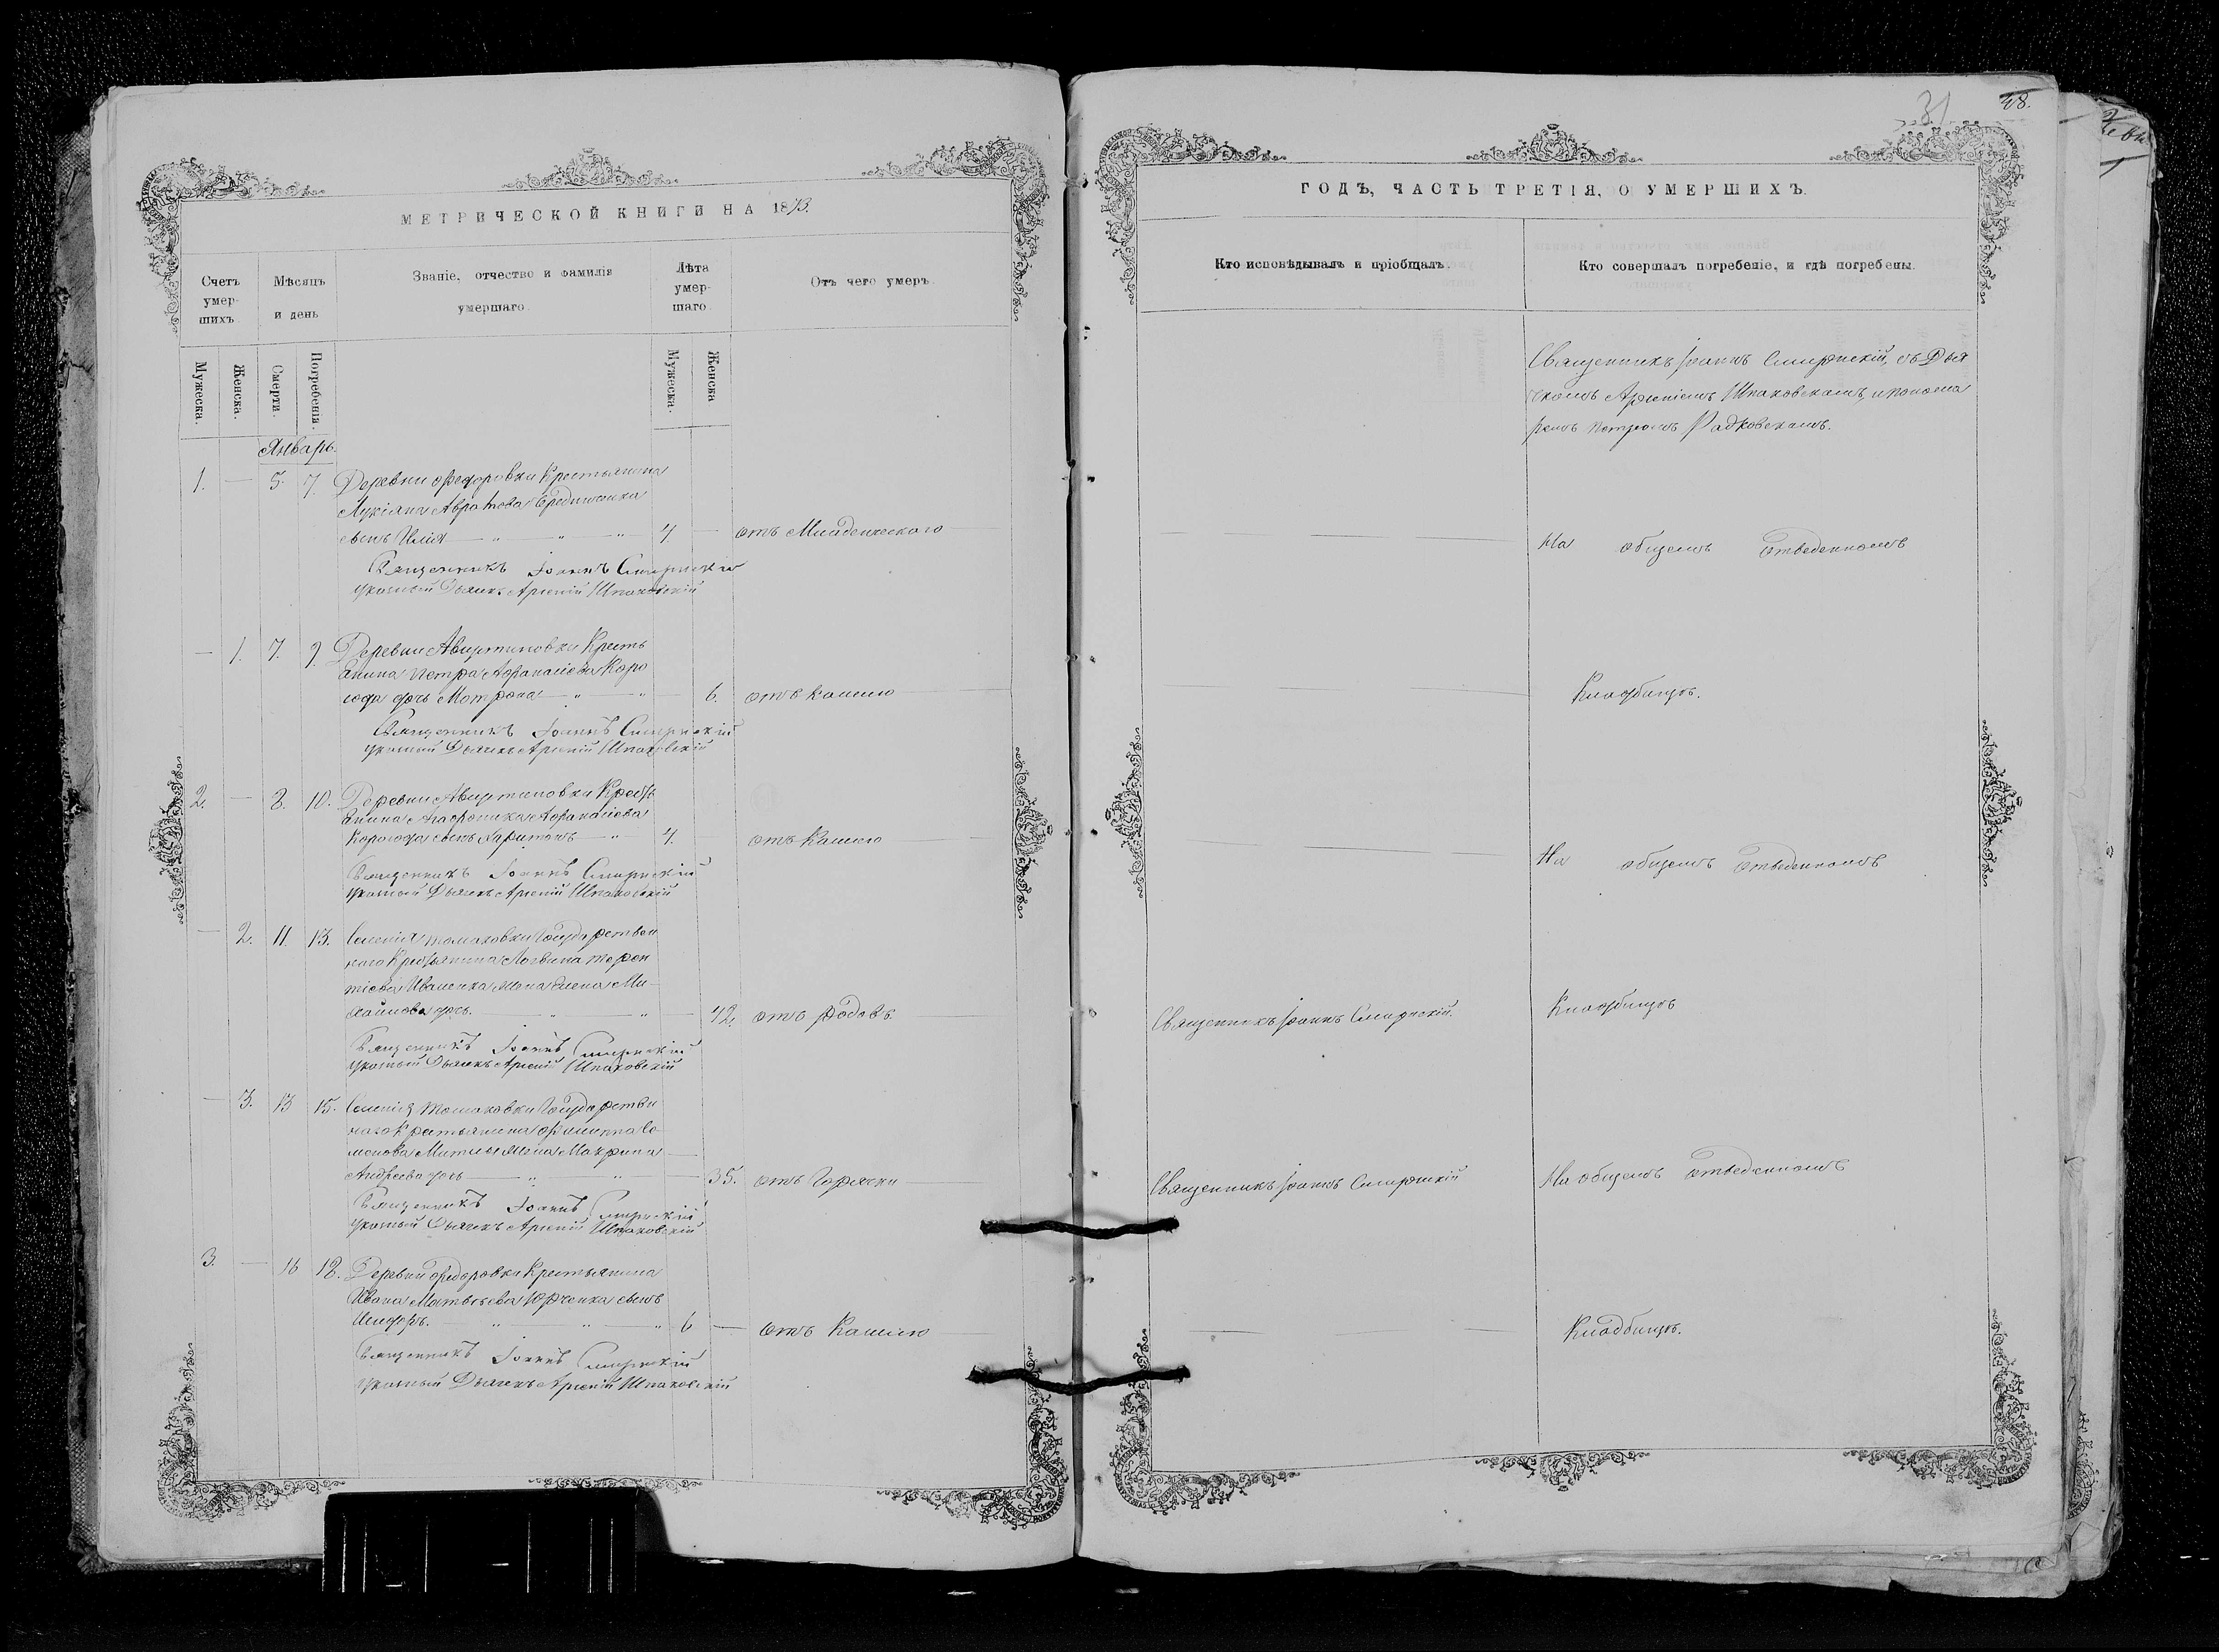 МЕТРИЧЕСКОЙ КНИГИ НА 1873.
Счетъ умер- шихъ.
Мѣсяцъ и день
Званіе, отчество и фамилія умершаго.
Лѣта умер- шаго.
Отъ чего умеръ
Мужеска.
Женска.
Смерти.
Погребенія.
Мужеска.
Женска
Январь.
1. — 5. 7. Деревни Федоровки Крестьянина
Лукіяна
сынъ Илія — " — " — " 4. — отъ Младенческого
Священникъ Іоаннъ Смирнскій
указный Дьячекъ Арсеній Шпаковскій
— 1. 7. 9. Деревни Августиновки Кресть
янина Петра Афанасіева Коро
дочь Мотрона — " — " — 6. отъ кашлю
Священникъ Іоаннъ Смирнскій
указный Дьячекъ Арсеній Шпаковскій
2. — 8. 10. Деревни Августиновки Кресть
янина Афанасіева
сынъ Харитонъ — " 4. отъ Кашлю
Священникъ Іоаннъ Смирнскій
указный Дьячекъ Арсеній Шпаковскій
— 2. 11. 13. Селенія Томаковки Государствен
наго Крестьянина Логвина Терен
тіева Иваненка жена Елена Ми-
хайлова дочь. — " — " — 42. отъ родовъ.
Священникъ Іоаннъ Смирнскій
указный Дьячекъ Арсеній Шпаковскій
— 3. 13 15. Селенія Томаковки Государствен
наго Крестьянина Филиппа Се
менова жена Макрина —
Андреева дочь — " — " — 35. отъ Горячки
Священникъ Іоаннъ Смирнскій
указный Дьячекъ Арсеній Шпаковскій
3. — 16 18. Деревни Федоровки Крестьянина
Ивана Матвѣева Юрченка сынъ
— " — " — " 6 — отъ Кашлю
Священникъ Іоаннъ Смирнскій
указный Дьячекъ Арсеній Шпаковскій
31
48.
ГОДЪ, ЧАСТЬ ТРЕТІЯ, О УМЕРШИХЪ.
Кто исповѣдывалъ и пріобщалъ.
Кто совершалъ погребеніе, и гдѣ погребены.
Священникъ Іоаннъ Смирнскій, съ Дья
чкомъ Арсеніемъ Шпаковскимъ, и понома
ремъ Петромъ Радковскимъ.
На общемъ отведенномъ
Кладбищѣ.
На общемъ отведенномъ
Священникъ Іоаннъ Смирнскій.
Кладбищѣ
Священникъ Іоаннъ Смирнскій
На общемъ отведенномъ
Кладбищѣ.